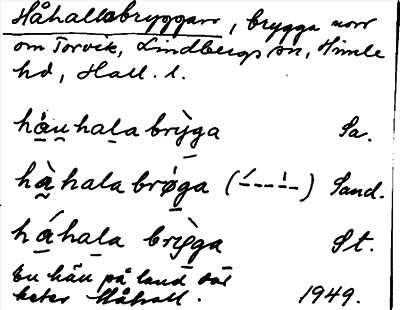 Håhallsbryggan, brygga norr
om Torvik, Lindbergs sn, Himle
hd, Hall. l.
hå̀u hala brỳga Sa.
hà hala brø̀ga (–́--–̀–) Sand.
há hala brỳga St.
En häll på land där
heter Håhall. 1949.